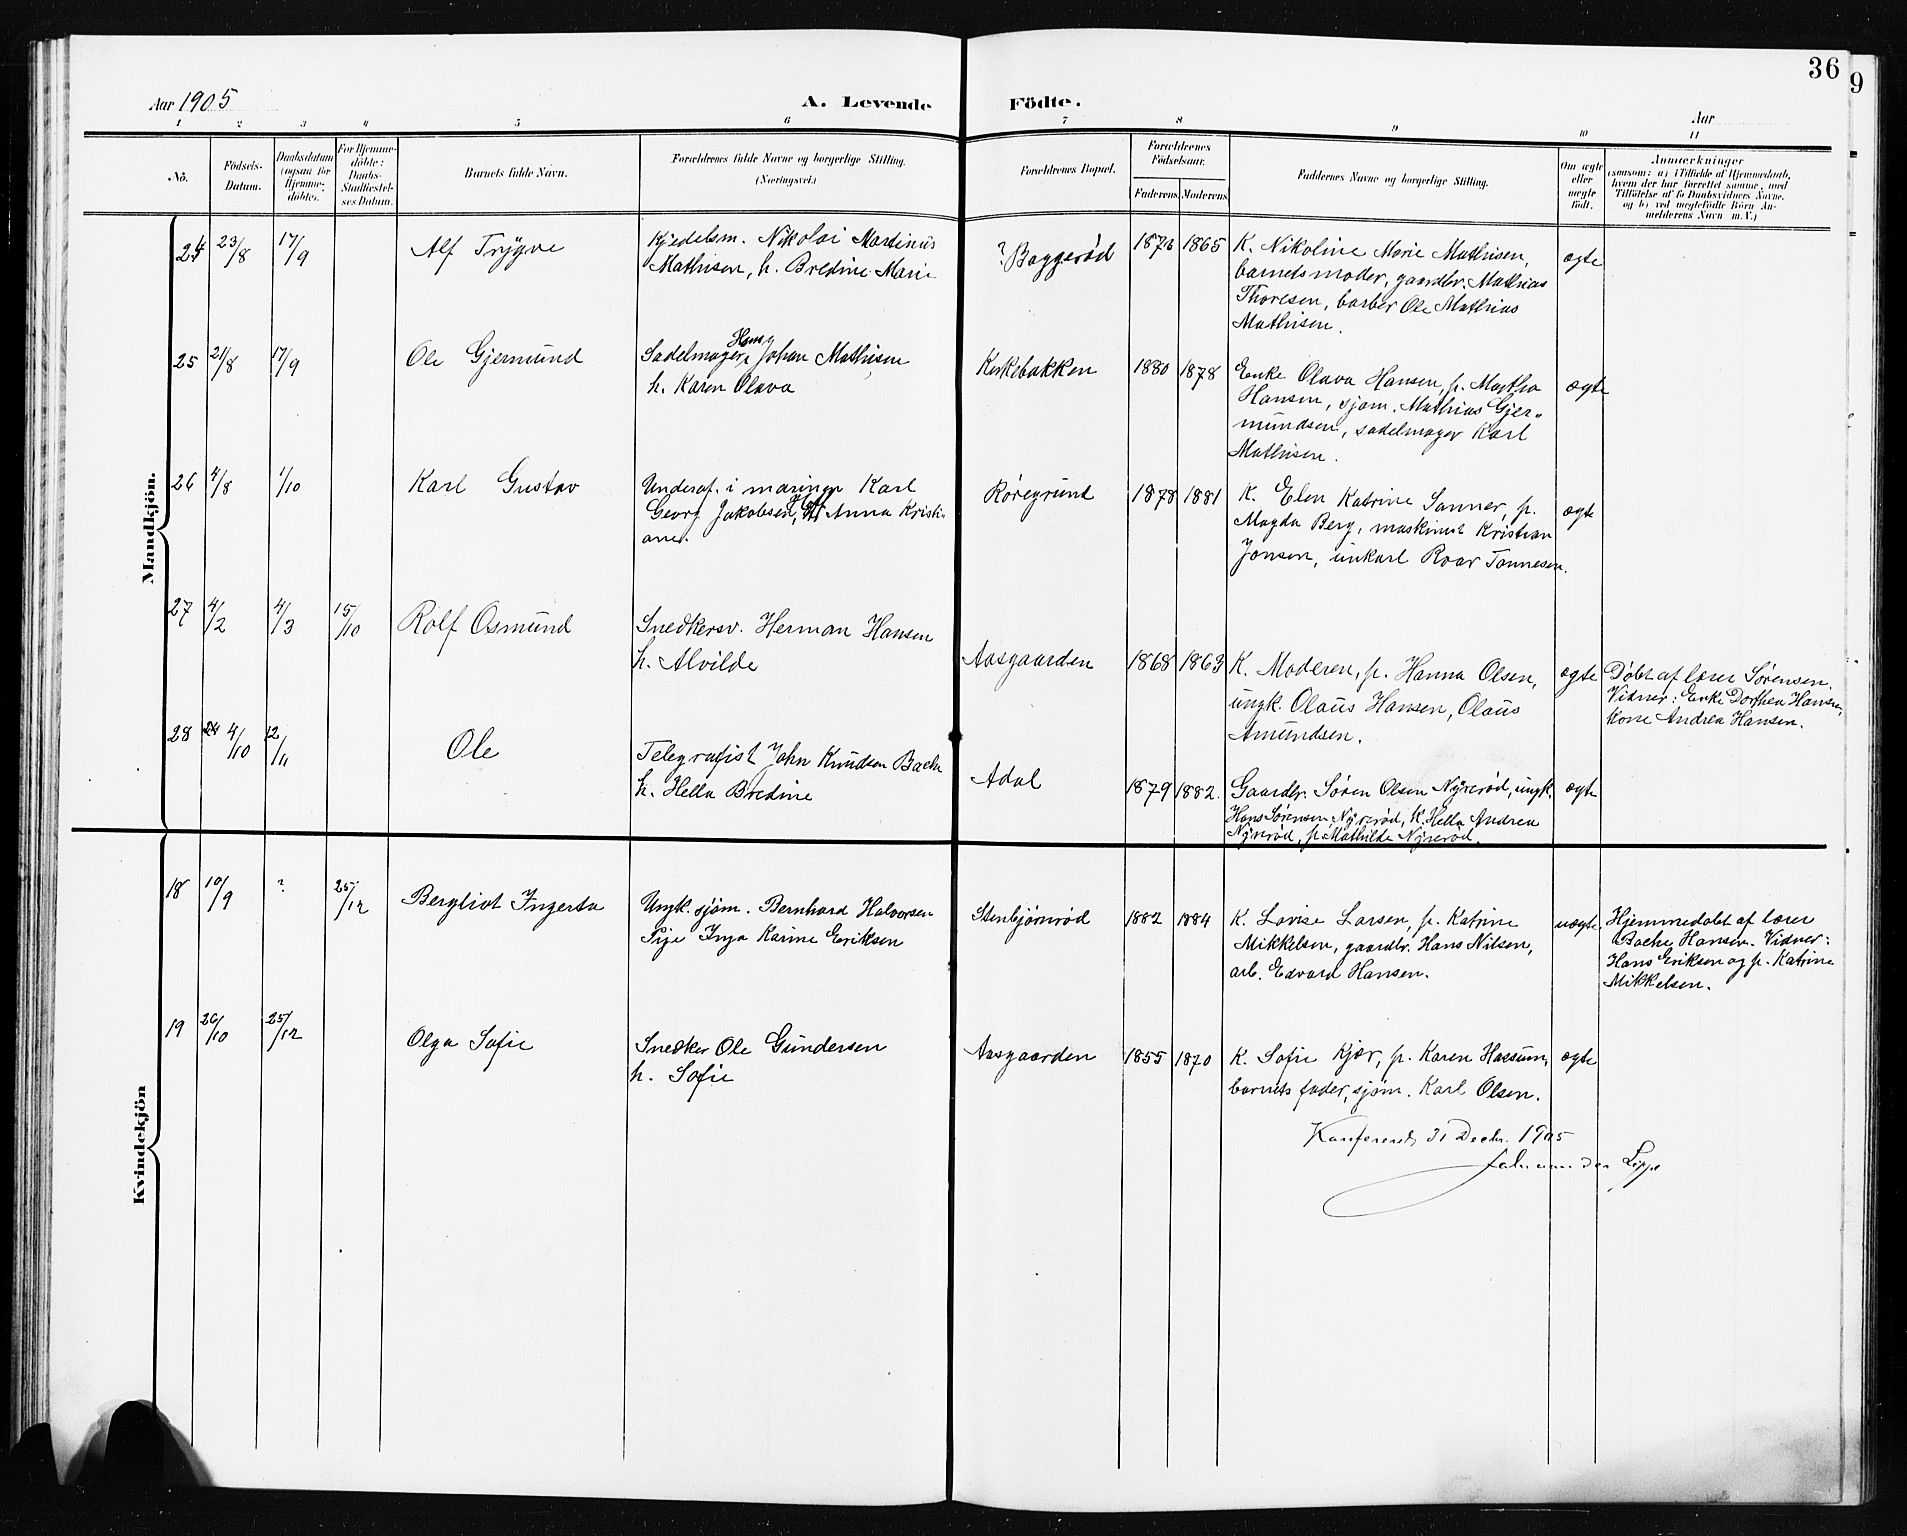 36
9
Aar 1905
A. Levende
Födte.
Aar
1 2 3 4 5 6 7 8 9 10 11
No.
Födsels-
Datum.
Daabsdatum
(ogsaa for
Hjemme-
döbte).
For Hjemme-
döbte:
Daabs-
Stadfæstel-
ses Datum.
Barnets fulde Navn.
Forældrenes fulde Navne og borgerlige Stilling.
(Næringsvei.)
Forældrenes Bopæl.
Forældrenes
Födselsaar.
Faderens. Moderens.
Faddernes Navne og borgerlige Stilling.
Om ægte
eller
uægte
födt.
Anmærkninger
(saasom: a) i Tilfælde af Hjemmedaab,
hvem der har forrettet samme, med
Tilföielse af to Daabsvidners Navne,
og b) ved uægtefödte Börn An-
melderens Navn m. V.)
Mandkjön.
24 23/8 17/9
Alf Trygve
Kjedelsm. Nikolai Martinius
Mathisen, h. Bredine Marie
? Baggerød
1865
K. Nikoline Marie Mathisen,
barnets moder, gaardbr. Mathias
Thoresen, barber Ole Mathias
Mathisen.
ægte
25 21/8 17/9
Ole Gjermund
Sadelmager Hans Johan Mathisen
h. Karen Olava
Kirkebakken
1880 1878
Enke Olava Hansen, p. Martha
Hansen, sjøm. Mathias Gjer-
mundsen, sadelmager Karl
Mathisen.
ægte
26 4/8 1/10
Karl Gustav
Underof. i marinen Karl
Georg Jakobsen, Anna Kristi-
ane.
Røregrund
1878 1881
K. Elen Katrine Sanner, p.
Magda Berg, maskinist Kristian
Jonsen, unkarl Roar Tonnesen.
ægte
27 4/2 4/3 15/10
Rolf Osmund
Snedkersv. Herman Hansen
h. Alvilde
Aasgaarden
1868 1863
K. Moderen, p. Hanna Olsen,
ungk. Olaus Hansen, Olaus
Amundsen.
ægte
Døbt af lærer Sørensen.
Vidner: Enke Dorthea Hansen,
kone Andrea Hansen.
28 4/10 12/11
Ole
Telegrafist John Knudsen Bache
h. Hella Bredine
Adal
1879 1882.
Gaardbr. Søren Olsen Nyrerød, ungk.
Hans Sørensen Nyrerød, K. Hella Andrea
Nyrerød, p. Mathilde Nyrerød.
ægte
Kvindekjön
18 10/9 ? 25/12
Bergliot Ingerta
Ungk. sjøm. Bernhard Halvorsen
Pige Inga Karine Eriksen
Stenbjørnrød
1882 1884
K. Lovise Larsen, p. Katrine
Mikkelsen, gaardbr. Hans Nilsen,
arb. Edvard Hansen.
uægte
Hjemmedøbt af lærer
Bache Hansen. Vidner:
Hans Eriksen og p. Katrine
Mikkelsen.
19 26/10 25/12
Olga Sofie
Snedker Ole Gundersen
h. Sofie
Aasgaarden
1855 1870
K. Sofie Kjær, p. Karen Hassum,
barnets fader, sjøm. Karl Olsen.
ægte
Konfereret 31 Decbr. 1905